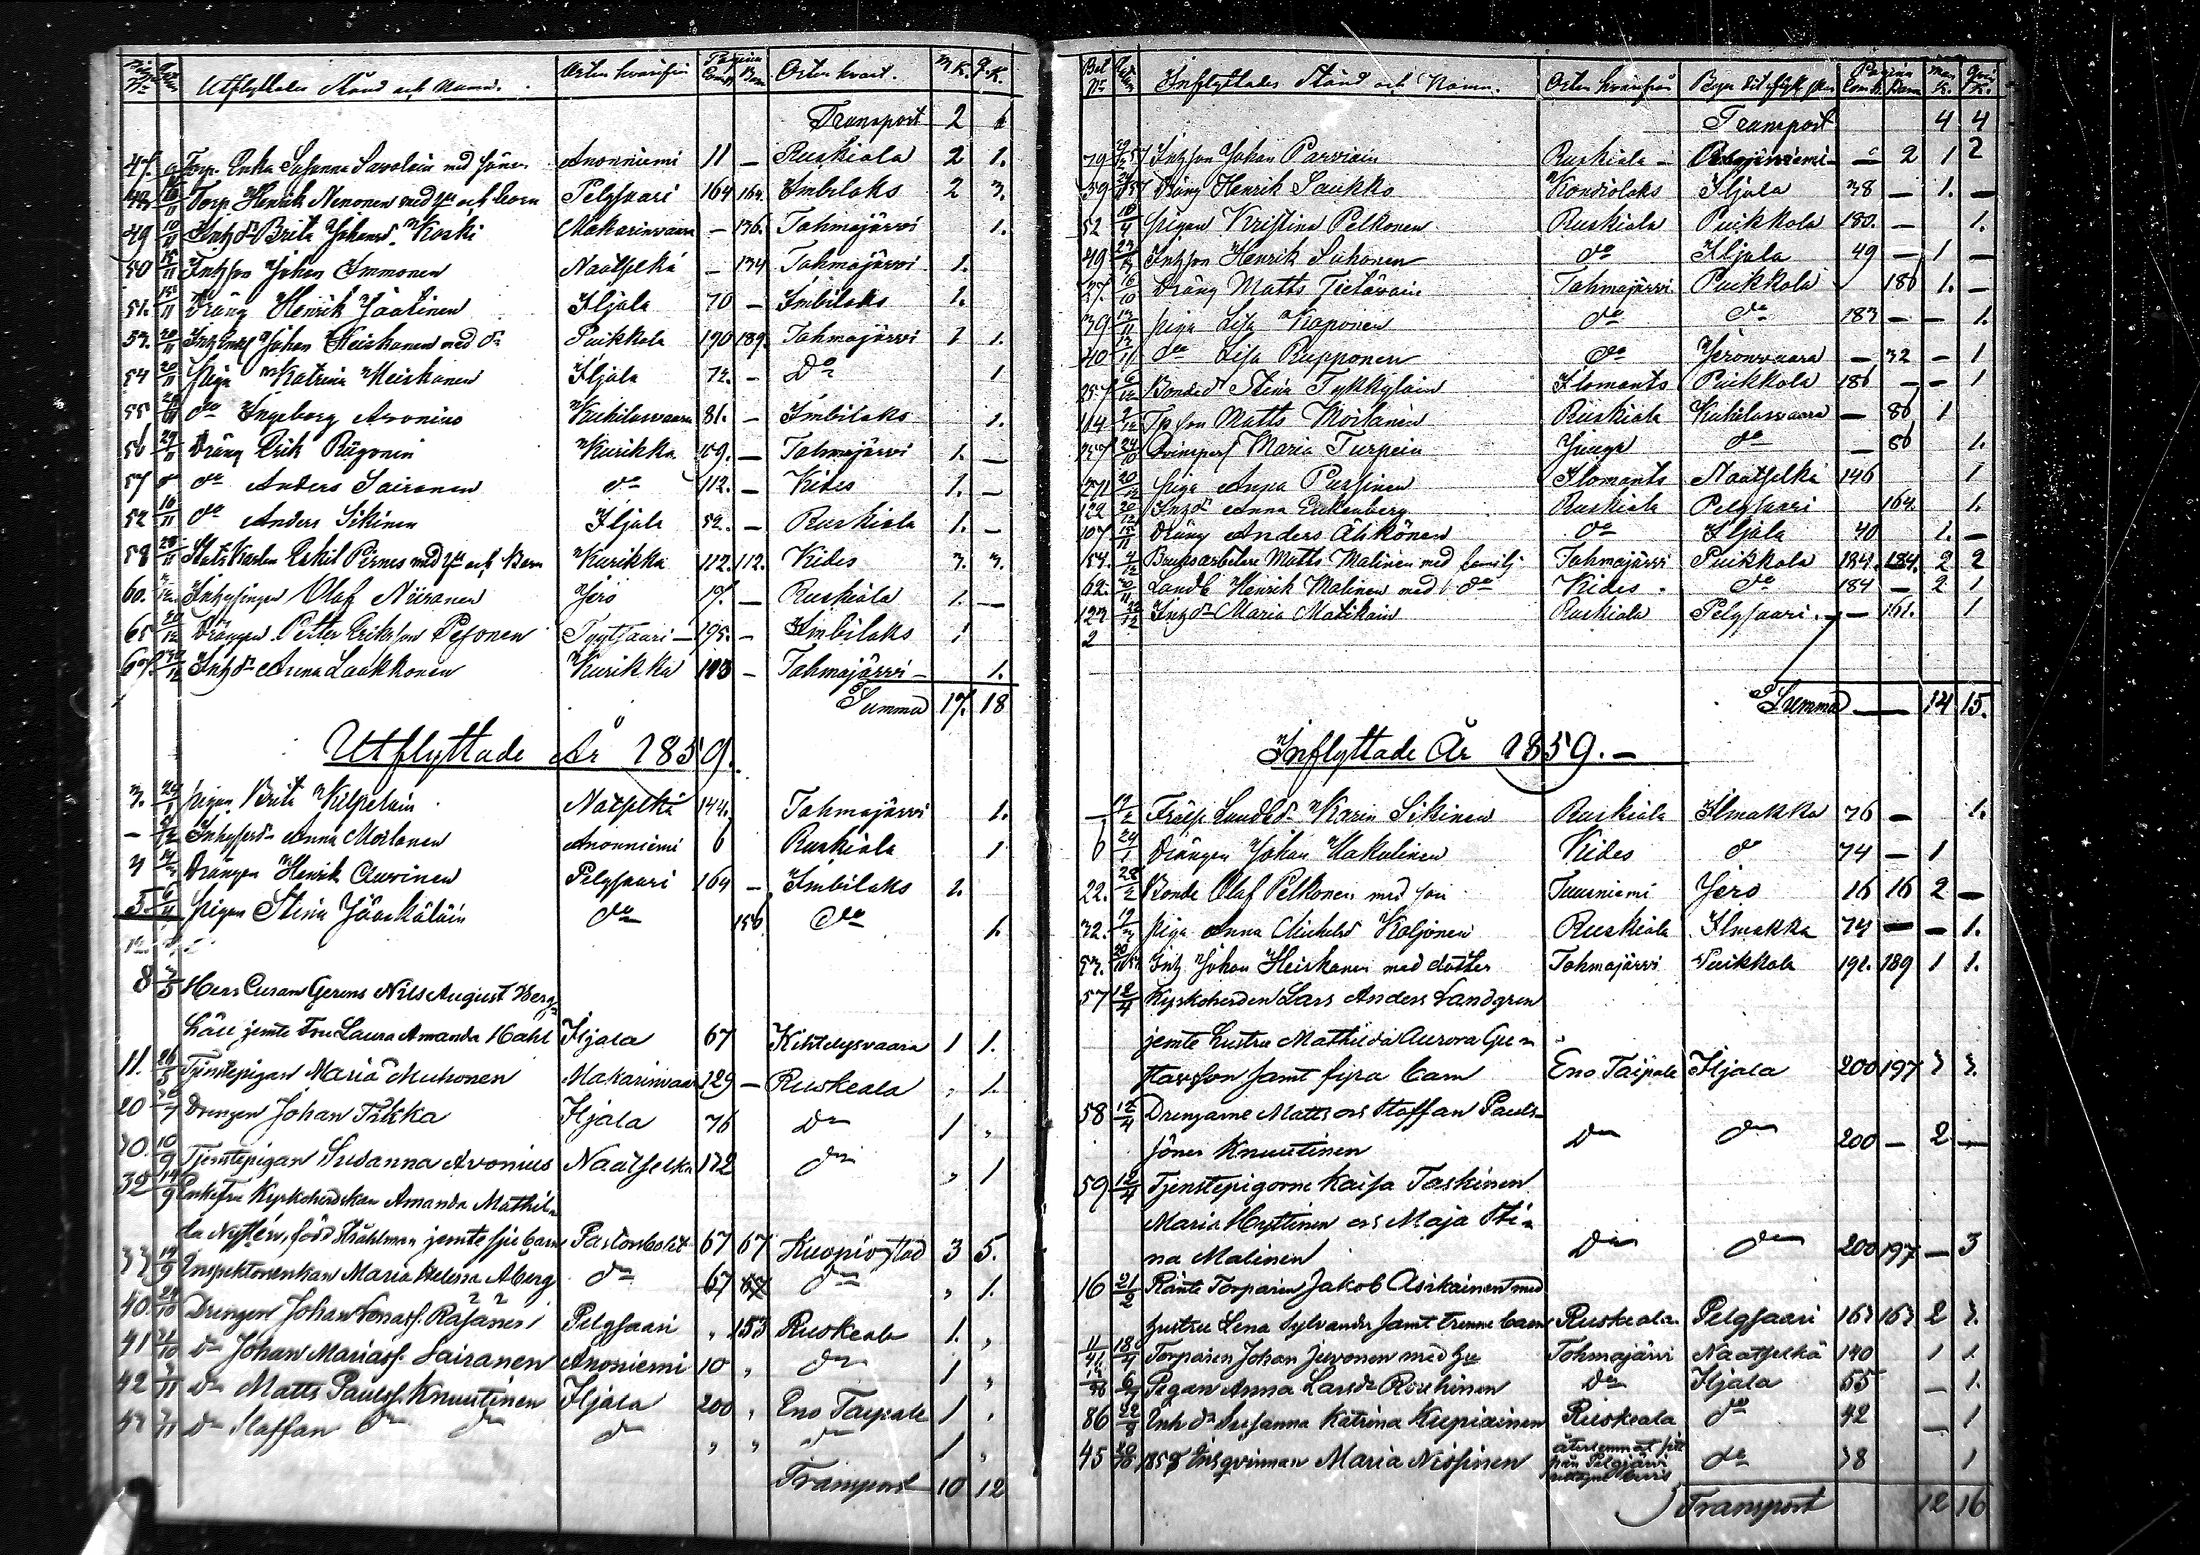 Utflyttades Stånd och Namn. Orten hvarifrån Pagina Comb. Barn Orten hvart. M.K. Q.K.
Transport 2 6
47. Torp. Enka Susanna Savolain med söner Anonniemi 11 — Ruskiala 2 1.
48 Torp. Henrik Nenonen med hu och barn Pelgsaari 164 164 Imbilaks 2 3.
49 10/11 Inhs dr Brita Johansd. Koski Makarinvaara — 136. Tohmajärvi 1.
50 15/11 Inhs son Johan Immonen Naatselkä — 134 Tohmajärvi 1.
51. 15/11 Dräng Henrik Jäätinen Iljala 70 — Imbilaks 1.
53. 20/11 Johan Heiskanen med dr Puikkola 190 189. Tohmajärvi 1 1.
54 20/11 Piga Katrina Meiskanen Iljala 72. — Do 1
55 do Ingeborg Aronius Kukilusvaara 81. — Imbilaks 1.
56 29/11 Dräng Erik Riigonen Kurikka 109. — Tohmajärvi 1. —
57 do Anders Sairanen do 112. — Kides 1. —
52 10/11 do Anders Sikinen Iljala 52. — Ruskiala 1. —
58 28/11 Stats Karlen Eskil Pirnes med hu och Barn Kurikka 112. 112. Kides 3. 3.
60. Inhysingen Olof Niiranen Jero 17. — Ruskiala 1. —
65 20/12 Drängen Petter Eriksson Pesonen Tyytsaari — 195. — Imbilaks 1
67. Inhs dr Anna Laakkonen Kurikka 113 — Tohmajärvi — 1.
Summa 17. 18
Utflyttade År 1859.
3. 24/1 Pigan Brita Kilpelain Natselkä 144. Tohmajärvi 1.
— Inhyses dr Anna Moilanen Anonniemi 6 Ruskiala 1
4 Drängen Henrik Auvinen Pelgsaari 164 — Imbilaks 1.
5. 6/4 Pigan Stina Jääskäläin do 156 do 1.
8 3/5 Herr Curam Gerens Nils August Berg-
häll jemte Fru Laura Amanda Hahl Iljala 67 Kihtelysvaara 1 1.
11. 26/5 Tjenstepigan Maria Muhonen Makarinvaara 129 — Ruskeala „ 1.
20 Drengen Johan Pikka Iljala 76 do 1 „
30. 10/9 Tjenstepigan Susanna Avonius Naatselka 132 do „ 1
32 14/9 Enkefru Kyrkoherdskan Amanda Mathil-
da Nyssén, född Ståhlman jemte sju barn Pastorsbolet 67 67 Kuopio stad 3 5.
33 14/9 Inspektorenkan Maria Helena Åberg do 67 67 do „ 1.
40. 24/10 Drengen Johan Jonass. Räsänen Pelgsaari „ 153 Ruskeala 1. „
41 21/10 do Johan Mariass. Sairanen Anoniemi 10 „ do 1 „
42 do Matts Paulss. Knuutinen Iljala 200 „ Eno Taipale 1 „
43 do Staffan do do do „ „ do 1 „
Transport 10 12
Inflyttades Stånd och Namn. Orten hvarifrån Byn dit flytt sker Pagina Comb. Barn Man K. Qvin K.
Transport 4 4
79 Inhs son Johan Parviain Ruskiala — — 2 1 2
59 Dräng Henrik Saukko Kondiolaks Iljala 38 — 1. —
52 10/4 Pigan Kristina Pelkonen Ruskiala Puikkola 180. — 1.
49 Inhs son Henrik Suhonen do Iljala 49 — 1 —
37. 16/10 Dräng Matts Tietäväin Tohmajärvi Puikkola 186 1. —
39 13/11 Piga Lisa Kaponen do do 183 — — 1.
40 13/11 do Lisa Rupponen do Jeronvaara — 32 — 1
Bonded. Stina Tykkyläin Ilomants Puikkola 186 — — 1
114 Tp son Matts Moilanen Ruskiala Kukilusvaara — 86 1
24/10 Qvinspers Maria Turpein Juuga do — 86 1.
271 20/12 Piga Anna Pursinen Ilomants Naatselkä 146 1
129 20/12 Inhs dr Anna Enkenberg Ruskiala Pelgsaari 164. 1.
107 15/11 Dräng Anders Ähkönen do Iljala 40 1. —
54. Bruksarbetare Matts Malinen med familj Tohmajärvi Puikkola 184. 184. 2 2
62. 30/11 Landb Henrik Malinen med do Kides. do 184 — 2 1
123 Inhs dr Maria Matikain Ruskiala Pelgsaari. — 161. 1
2
Summa — 14 15.
Inflyttade År 1859. —
Frälse Landbd Karin Sikinen Ruskiala Ilmakka 76 — 1.
6 24/1 Drängen Johan Hakulinen Kides do 74 — 1
22. 28/2 Bonde Olof Pelkonen med son Tuurniemi Jero 16 16 2 —
32. Piga Anna Michelsd Koljonen Ruskiala Ilmakka 74 — — 1.
53. Inhs Johan Heiskanen med dotter Tohmajärvi Puikkola 191. 189 1 1.
57 12/4 Kyrkoherden Lars Anders Landgren
jemte hustru Mathilda Aurora Gu-
stavsson samt fyra barn Eno Taipale Iljala 200 197 3 3.
58 12/4 Drengarne Matts och Staffan Pauls-
söner Knuutinen do do 200 — 2 —
59 12/4 Tjenstepigorna Kaisa Taskinen
Maria Hyttinen och Maja Sti-
na Malinen do do 200 197 — 3
16 21/2 Ränte Torparen Jakob Asikainen med
hustru Lena Sylvander samt trenne barn Ruskeala Pelgsaari 163 163 2 3.
41. 18/4 Torparen Johan Juvonen med hu Tohmajärvi Naatselkä 140 1 1
Pigan Anna Larsdr Rouhinen do Iljala 55 — 1.
86 22/8 Enh dr Susanna Katrina Kupiainen Ruskeala do 42 — 1
45 20/10 1858 Inhsqvinnan Maria Nissinen återsemnat från Pelgjärvi do 38 1
Transport 12 16